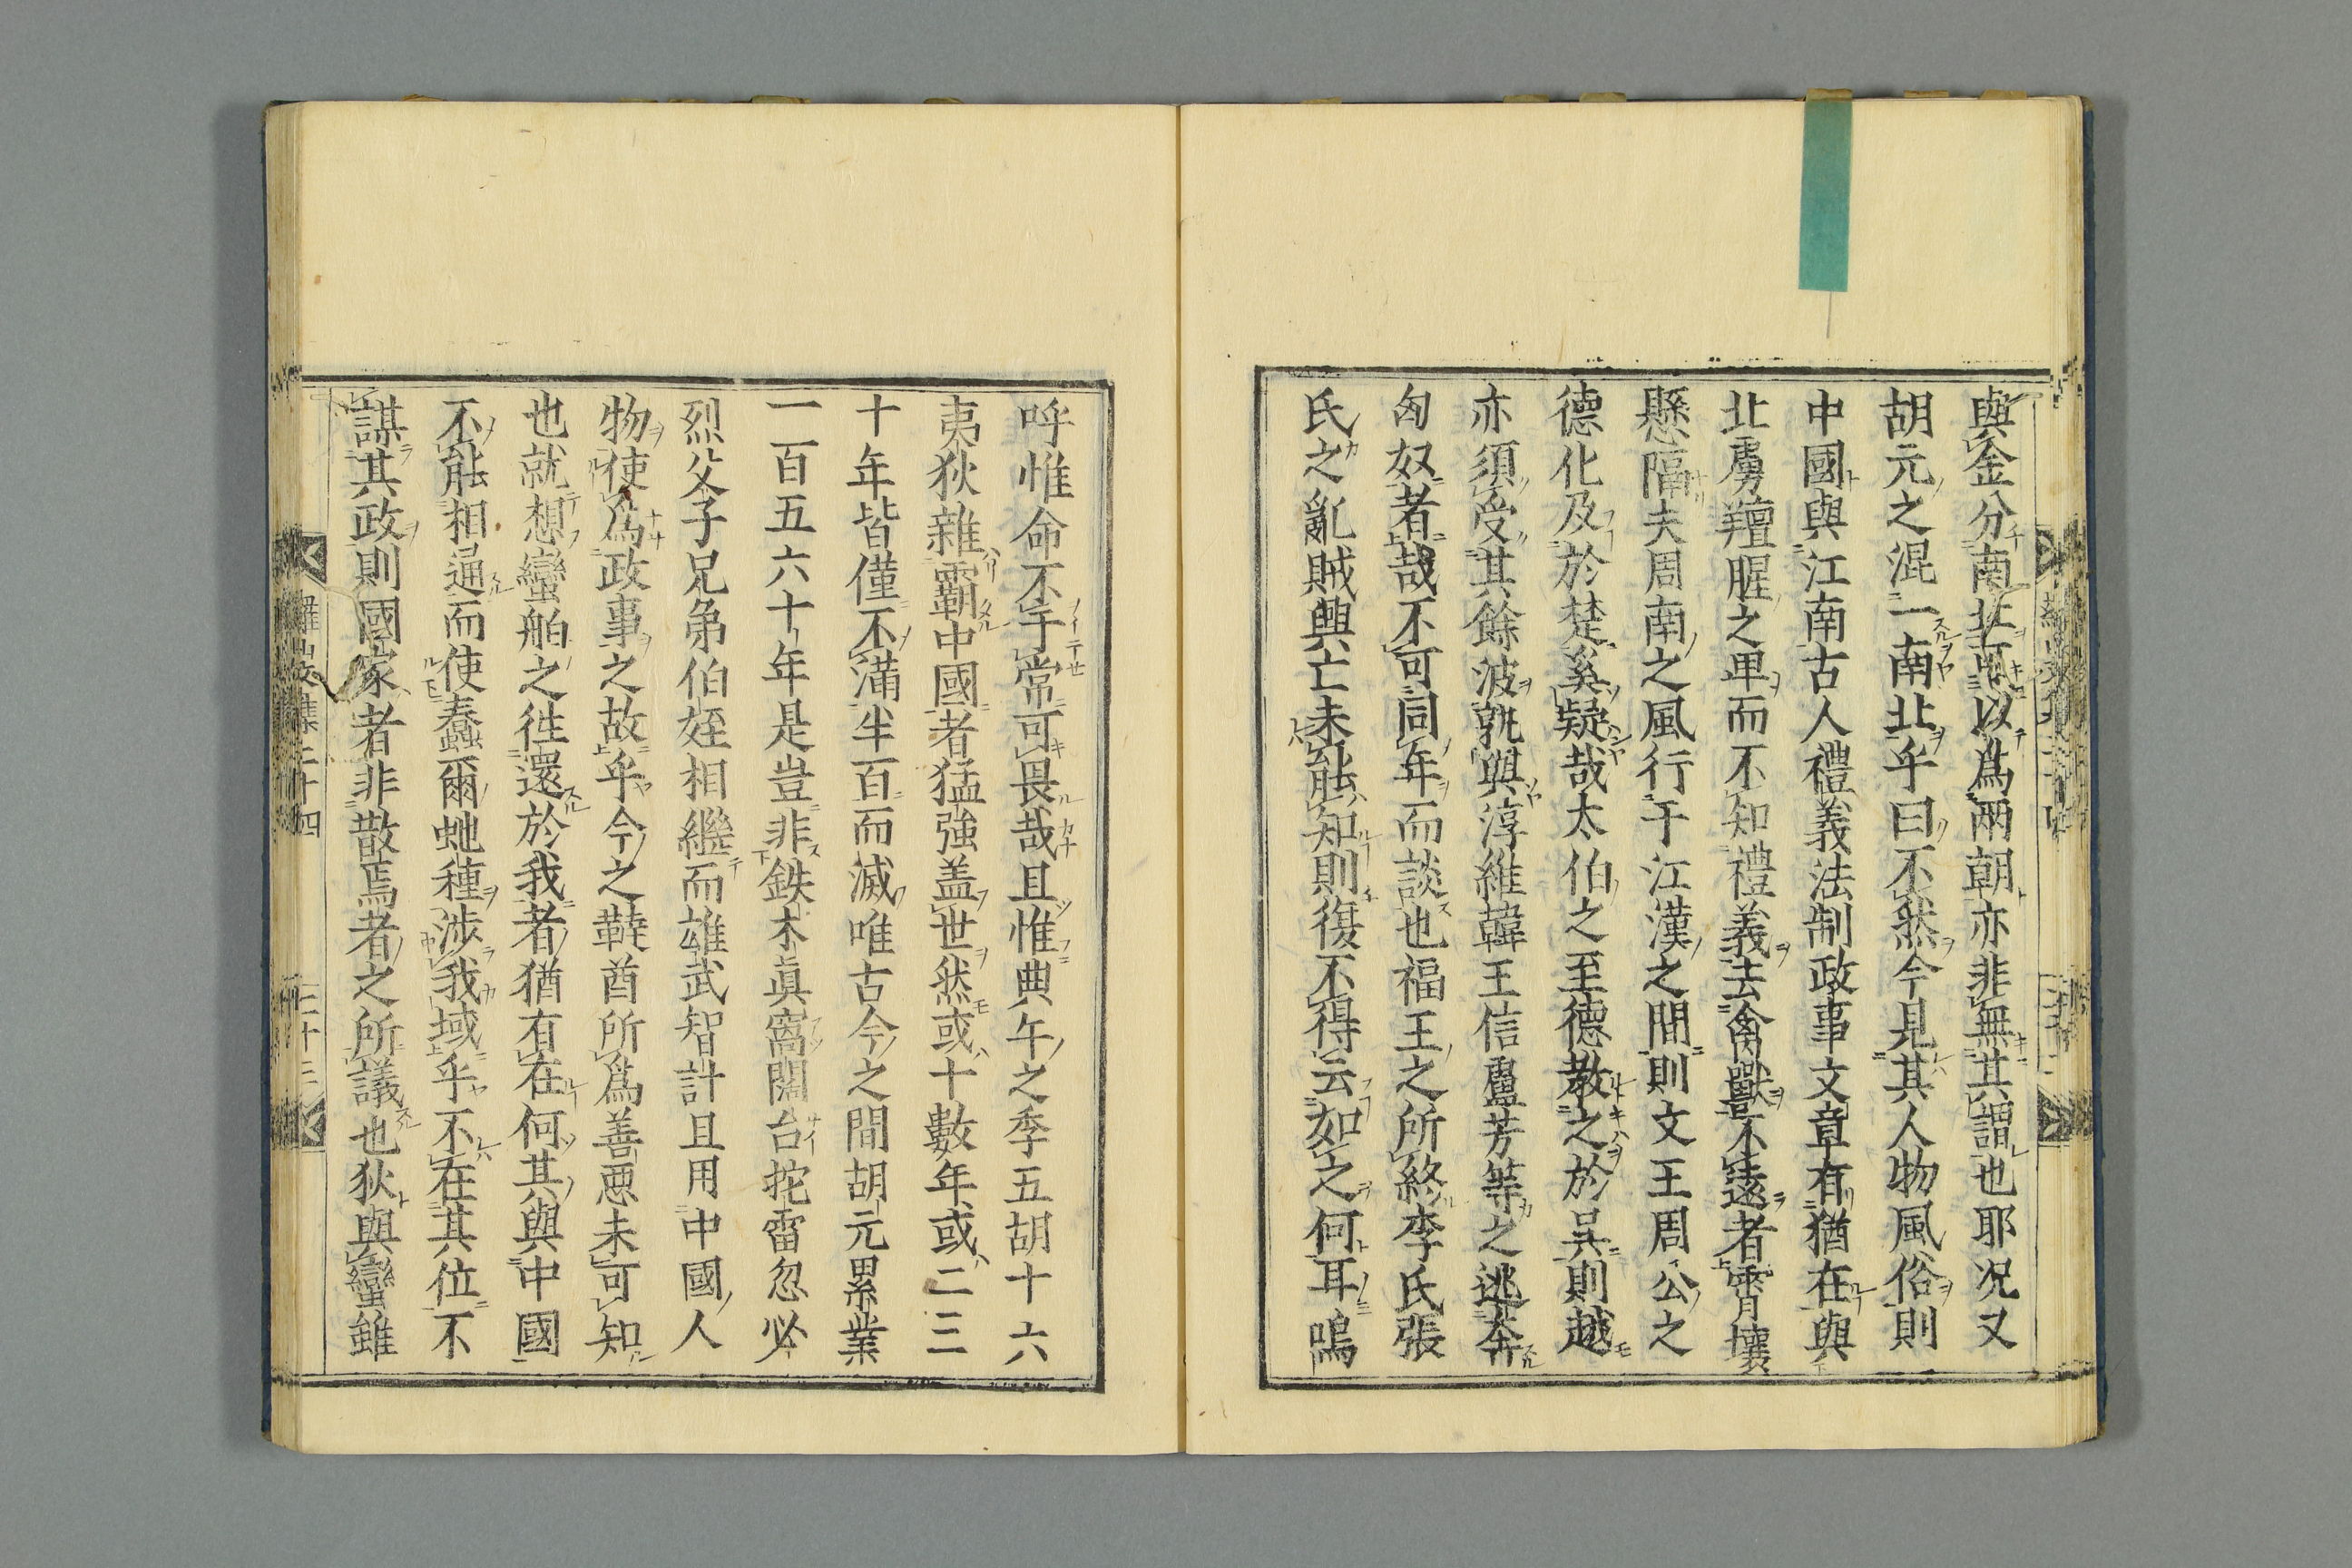 與金分南北可以爲兩朝亦非無其謂也耶况又
胡元之混一南北乎曰不然今見其人物風俗則
中國與江南古人禮義法制政事文章有猶在與
北虜羶腥之卑而不知禮義去禽獸不遠者霄壤
懸隔夫周南之風行于江漢之間則文王周公之
德化及於楚奚疑哉太伯之至德教之於吳則越
亦須受其餘波孰與淳維韓王信盧芳等之逃奔
匈奴者哉不可同年而談也福王之所終李氏張
氏之亂賊興亡未能知則復不得云如之何耳嗚
呼惟命不于常可畏哉且惟典午之季五胡十六
夷狄雜霸中國者猛強盖世然或十數年或二三
十年皆僅不滿半百而滅唯古今之間胡元累業
一百五六十年是豈非鉄木眞窩闊台拕雷忽必
烈父子兄弟伯姪相繼而雄武智計且用中國人
物使爲政事之故乎今之韃酋所爲善惡未可知
也就想蠻舶之徃還於我者猶有在何其與中國
不能相通而使蠢爾虵種涉我域乎不在其位不
謀其政則國家者非散焉者之所議也狄與蠻雖
羅山文集三十四
三十三